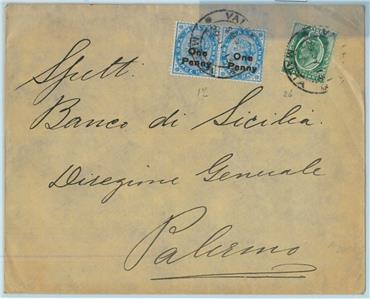 VAL
One Penny
One Penny
12
26
Spett.
Banco di Sicilia
Diregione Generale
Palermo